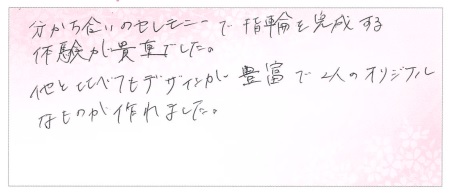 分かち合いのセレモニーで指輪を完成する
体験が貴重でした。
他と比べてもデザインが豊富で2人のオリジナル
なものが作れました。